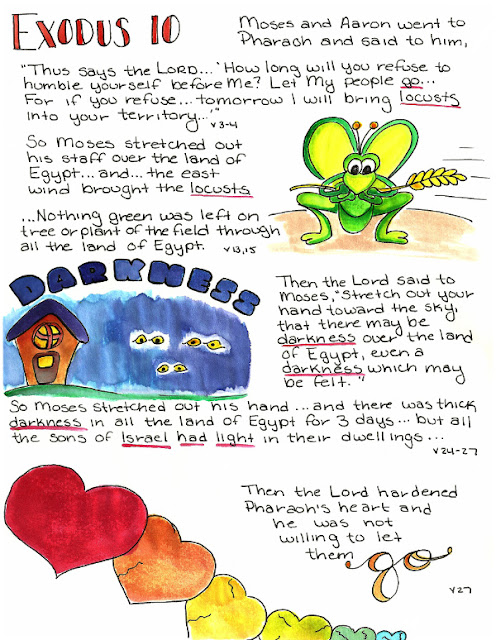 EXODUS 10
Moses and Aaron went to
Pharaoh and said to him,
"Thus says the LORD... 'How long will you refuse to
humble yourself before Me? Let My people go...
For if you refuse... tomorrow I will bring locusts
into your territory...'"
v3-4
So Moses stretched out
his staff over the land of
Egypt... and... the east
wind brought the locusts
...Nothing green was left on
tree or plant of the field through
all the land of Egypt.
v13,15
DARKNESS
Then the Lord said to
Moses, "Stretch out your
hand toward the sky,
that there may be
darkness over the land
of Egypt, even a
darkness which may
be felt."
So Moses stretched out his hand... and there was thick
darkness in all the land of Egypt for 3 days... but all
the sons of Israel had light in their dwellings...
v24-27
Then the Lord hardened
Pharaoh's heart and
he was not
willing to let
them go
v27